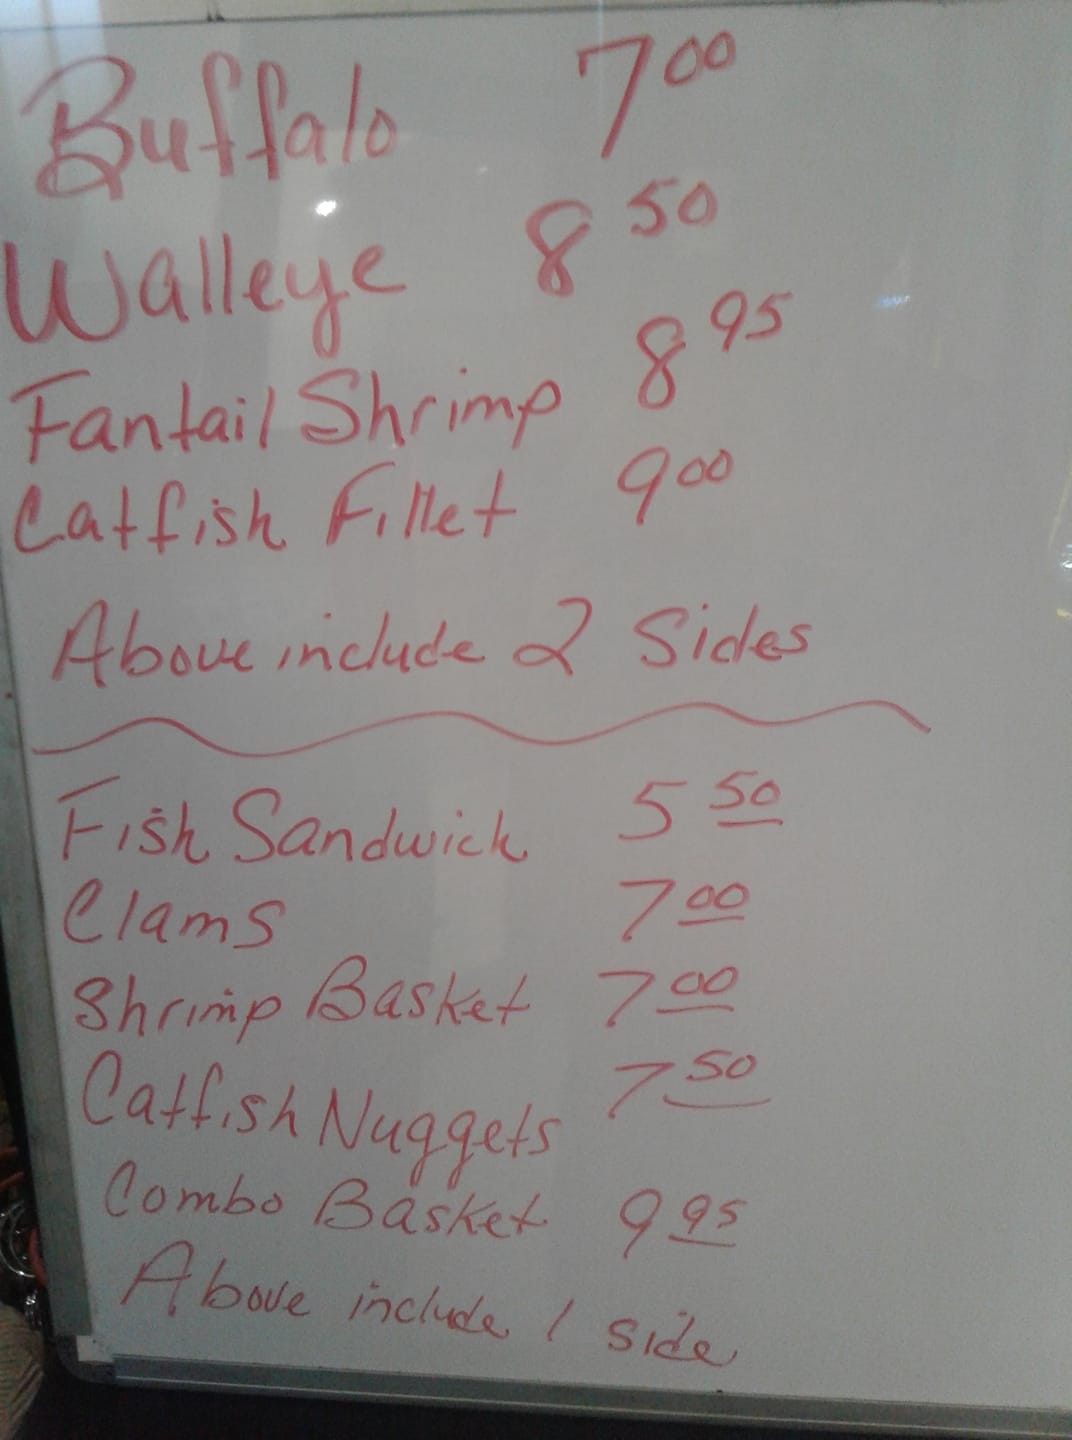 Buffalo 7 00
Walleye 8 50
Fantail Shrimp 8 95
Catfish Fillet 9 00
Above include 2 Sides
Fish Sandwich 5 50
Clams 7 00
Shrimp Basket 7 00
Catfish Nuggets 7 50
Combo Basket 9 95
Above include 1 side